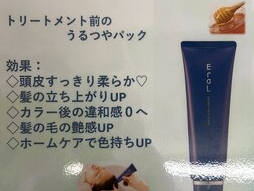 トリートメント前の
うるつやパック
効果：
◇頭皮すっきり柔らか♡
◇髪の立ち上がりUP
◇カラー後の違和感０へ
◇髪の毛の艶感UP
◇ホームケアで色持ちUP